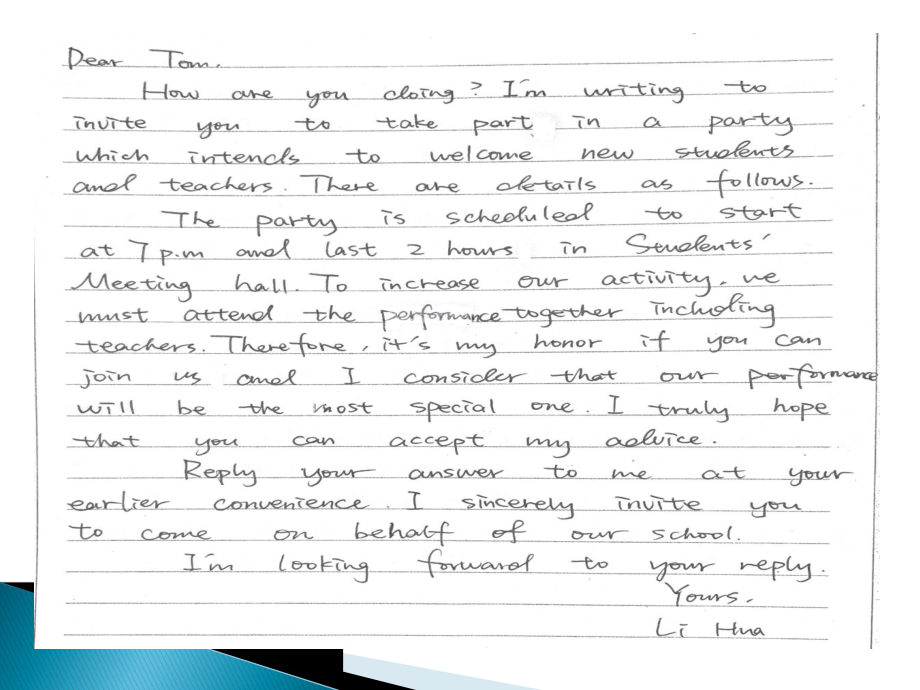 Dear Tom.
How are you doing? I'm writing to
invite you to take part in a party
which intends to welcome new students
and teachers. There are details as follows.
The party is scheduled to start
at 7 p.m and last 2 hours in Students'
Meeting hall. To increase our activity, we
must attend the performance together including
teachers. Therefore, it's my honor if you can
join us and I consider that our performance
will be the most special one. I truly hope
that you can accept my advice.
Reply your answer to me at your
earlier convenience. I sincerely invite you
to come on behalf of our school.
I'm looking forward to your reply.
Yours.
Li Hua